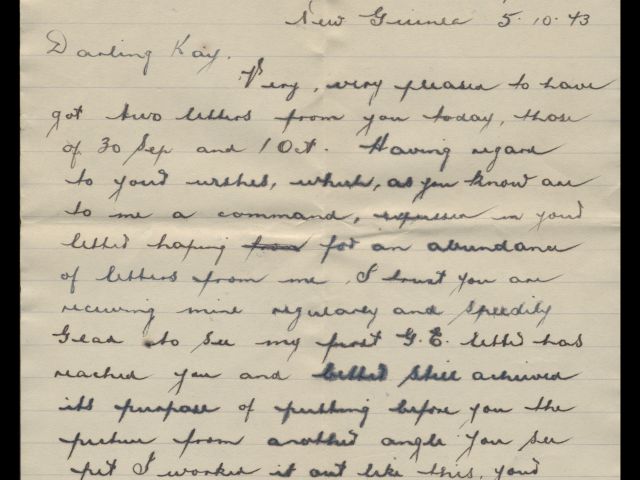 New Guinea 5.10.43
Darling Kay.
Very, very pleased to have
got two letters from you today, those
of 30 Sep and 1 Oct. Having regard
to your wishes, which, as you know are
to me a command, expressed in your
letter hoping from for an abundance
of letters from me, I trust you are
receiving mine regularly and speedily
Glad to see my first G.E. letter has
reached you and better still achieved
its purpose of putting before you the
picture from another angle You see
pet I worked it out like this, your